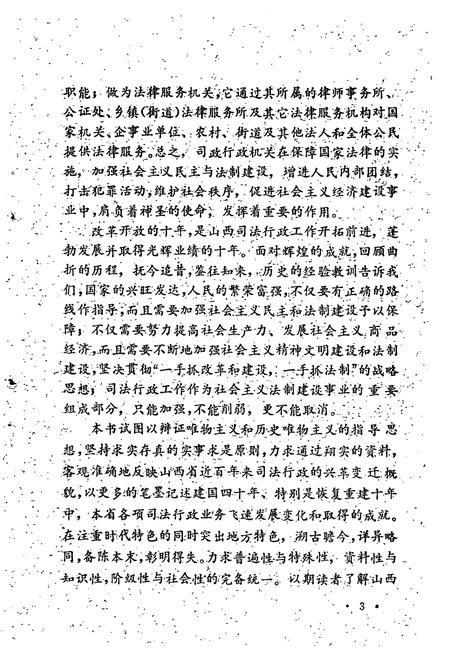 职能；做为法律服务机关，它通过其所属的律师事务所、
公证处、乡镇(街道)法律服务所及其它法律服务机构对国
家机关、企事业单位、农村、街道及其他法人和全体公民
提供法律服务。总之，司政行政机关在保障国家法律的实
施，加强社会主义民主与法制建设，增进人民内部团结，
打击犯罪活动，维护社会秩序，促进社会主义经济建设事
业中，肩负着神圣的使命，发挥着重要的作用。
改革开放的十年，是山西司法行政工作开拓前进，蓬
勃发展并取得光辉业绩的十年。面对辉煌的成就，回顾曲
折的历程，抚今追昔，鉴往知来，历史的经验教训告诉我
们，国家的兴旺发达，人民的繁荣富强，不仅要有正确的路
线作指导，而且需要加强社会主义民主和法制建设予以保
障；不仅需要努力提高社会生产力、发展社会主义商品
经济，而且需要不断地加强社会主义精神文明建设和法制
建设，坚决贯彻“一手抓改革和建设，一手抓法制”的战略
思想；司法行政工作作为社会主义法制建设事业的重要
组成部分，只能加强，不能削弱，更不能取消。
本书试图以辩证唯物主义和历史唯物主义的指导思
想，坚持求实存真的实事求是原则，力求通过翔实的资料，
客观准确地反映山西省近百年来司法行政的兴革变迁概
貌，以更多的笔墨记述建国四十年、特别是恢复重建十年
中，本省各项司法行政业务飞速发展变化和取得的成就。
在注重时代特色的同时突出地方特色，溯古瞻今，详异略
同，各陈本末，彰明得失。力求普遍性与特殊性，资料性与
知识性，阶级性与社会性的完备统一。以期读者了解山西
·3·